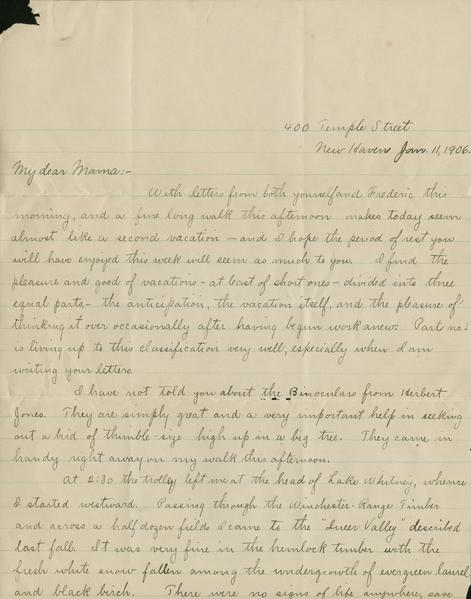 400 Temple Street
New Haven Jan. 11, 1906.
My dear Mama:-
With letters from both yourself and Frederic this
morning, and a fine long walk this afternoon makes today seem
almost like a second vacation — and I hope the period of rest you
will have enjoyed this week will seem as much to you. I find the
pleasure and good of vacations - at least of short ones - divided into three
equal parts - the anticipation, the vacation itself, and the pleasure of
thinking it over occasionally after having begun work anew. Part no. 3
is living up to this classification very well, especially when I am
writing your letters.
I have not told you about the Binoculars from Herbert
Jones. They are simply great and a very important help in seeking
out a bird of thimble size high up in a big tree. They came in
handy right away on my walk this afternoon.
At 2:30 the trolley left me at the head of Lake Whitney, whence
I started westward. Passing through the Winchester-Range Timber
and across a half dozen fields I came to the "Queer Valley" described
last fall. It was very fine in the hemlock timber with the
fresh white snow fallen among the undergrowth of evergreen laurel
and black birch. There were no signs of life anywhere, save